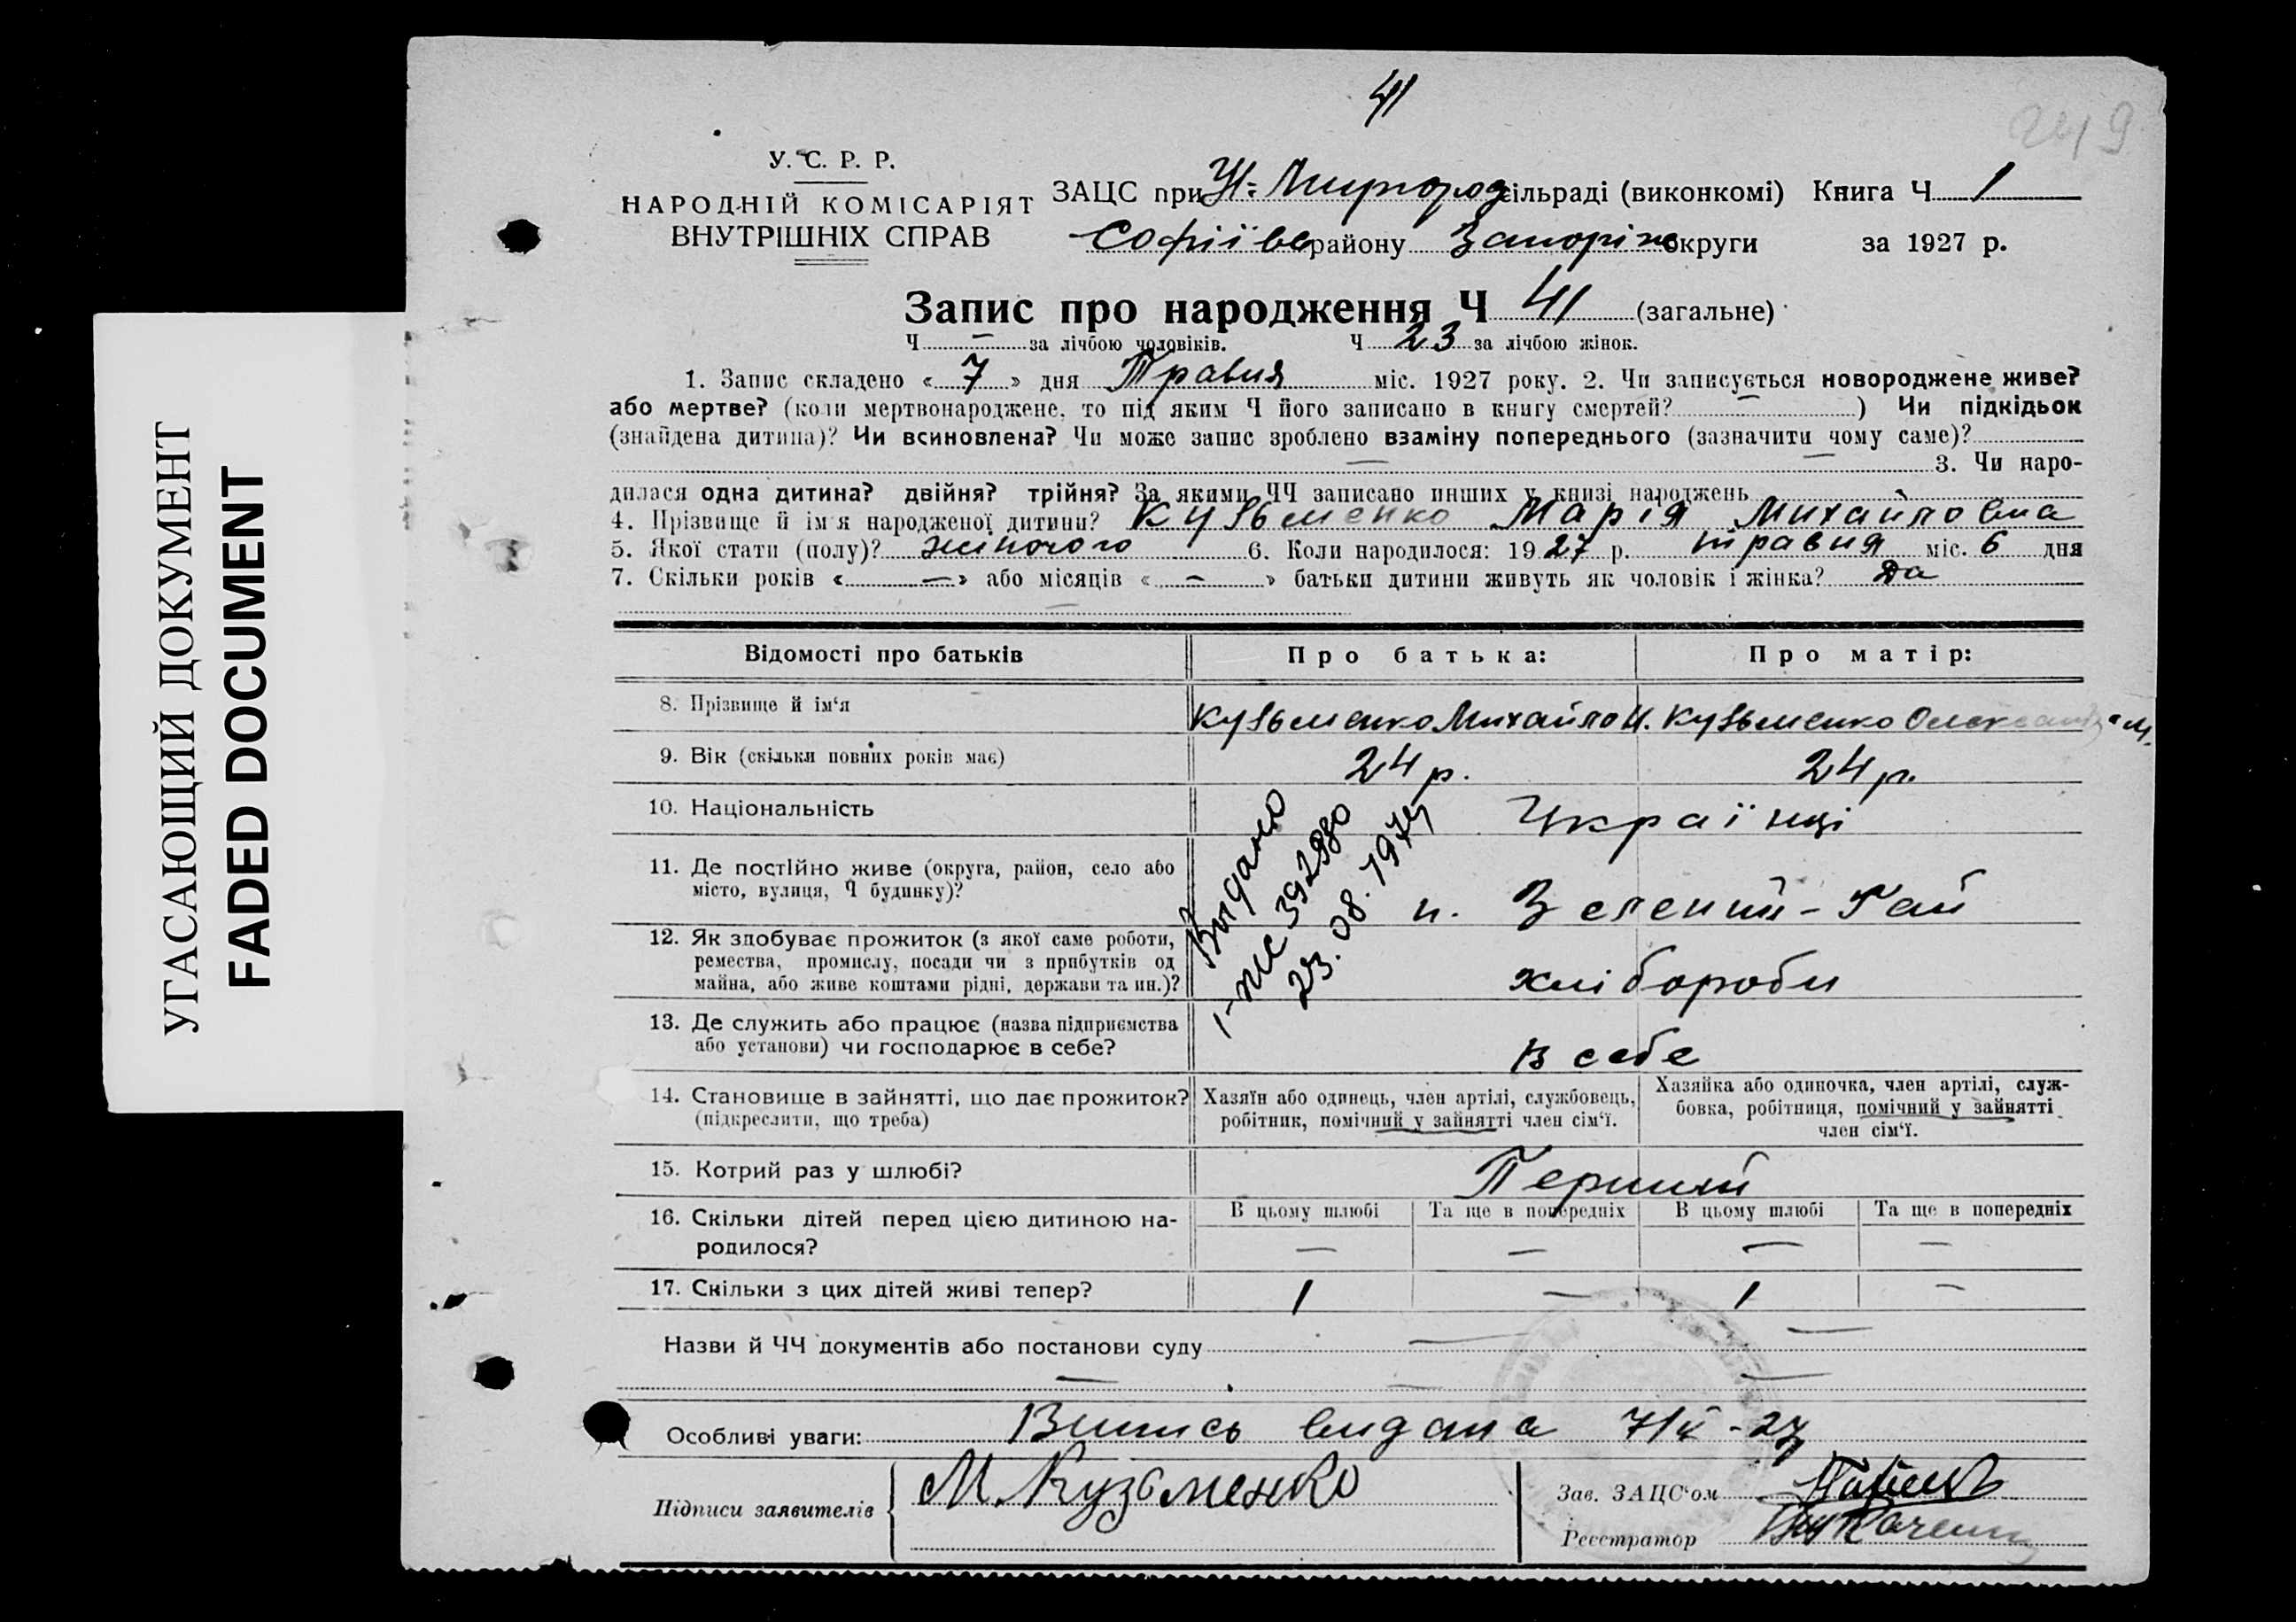 41
2419
У. С. Р. Р.
НАРОДНІЙ КОМІСАРІЯТ
ВНУТРІШНІХ СПРАВ
ЗАЦС при Н-Миргород сільраді (виконкомі) Книга Ч 1
Софіївс району Запоріж округи за 1927 р.
Запис про народження Ч 41 (загальне)
Ч — за лічбою чоловіків. Ч 23 за лічбою жінок.
1. Запис складено « 7 » дня Травня міс. 1927 року. 2. Чи записується новороджене живе?
або мертве? (коли мертвонароджене, то під яким Ч його записано в книгу смертей? — ) Чи підкідьок
(знайдена дитина)? Чи всиновлена? Чи може запис зроблено взаміну попереднього (зазначити чому саме)?
— — 3. Чи наро-
дилася одна дитина? двійня? трійня? За якими ЧЧ записано инших у книзі народжень
4. Прізвище й ім'я народженої дитини? Кузьменко Марія Михайловна
5. Якої стати (полу)? жіночого 6. Коли народилося: 1927 р. травня міс. 6 дня
7. Скільки років « — » або місяців « — » батьки дитини живуть як чоловік і жінка? Да
—
Відомості про батьків Про батька: Про матір:
8. Прізвище й ім'я Кузьменко Михайло И. Кузьменко Олександра М.
9. Вік (скільки повних років має) 24 р. 24 р.
10. Національність Українці
11. Де постійно живе (округа, район, село або
місто, вулиця, Ч будинку)? п. Зелений-Гай
12. Як здобуває прожиток (з якої саме роботи,
ремества, промислу, посади чи з прибутків од
майна, або живе коштами рідні, держави та ин.)? хлібороби
Выдано
I-ЖС 392980
23.08.1974
13. Де служить або працює (назва підприємства
або установи) чи господарює в себе? в себе
14. Становище в зайнятті, що дає прожиток?
(підкреслити, що треба)
Хазяїн або одинець, член артілі, службовець,
робітник, помічний у зайнятті член сім'ї.
Хазяйка або одиночка, член артілі, служ-
бовка, робітниця, помічний у зайнятті
член сім'ї.
15. Котрий раз у шлюбі? Перший
16. Скільки дітей перед цією дитиною на-
родилося?
В цьому шлюбі Та ще в попередніх В цьому шлюбі Та ще в попередніх
— — — —
17. Скільки з цих дітей живі тепер? 1 — 1 —
Назви й ЧЧ документів або постанови суду — —
— — —
Особливі уваги: Випись видана 7/V-27
Підписи заявителів М Кузьменко
Зав. ЗАЦС'ом
Реєстратор
УГАСАЮЩИЙ ДОКУМЕНТ
FADED DOCUMENT